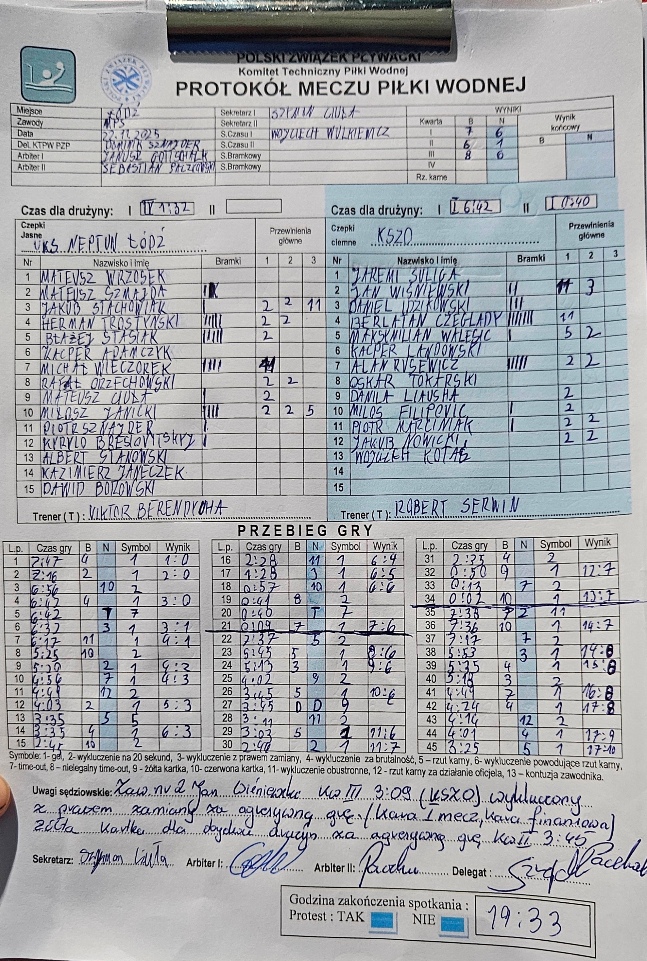 POLSKI ZWIĄZEK PŁYWACKI
Komitet Techniczny Piłki Wodnej
PROTOKÓŁ MECZU PIŁKI WODNEJ
Miejsce ŁÓDŹ Sekretarz I SZYMON CIUŁA WYNIKI
Zawody MPS Sekretarz II Kwarta B N Wynik końcowy
Data 22.11.2025 S.Czasu I WOJCIECH WULKIEWICZ I 7 6 B N
Del. KTPW PZP DOMINIK SZNAJDER S.Czasu II II 6 1
Arbiter I JANUSZ S.Bramkowy III 8 6
Arbiter II SEBASTIAN S.Bramkowy IV
Rz. karne
Czas dla drużyny: I IV 1:32 II
Czas dla drużyny: I I 6:42 II I 0:40
Czepki Jasne UKS NEPTUN ŁÓDŹ Przewinienia główne
Czepki ciemne KSZO Przewinienia główne
Nr Nazwisko i imię Bramki 1 2 3
1 MATEUSZ WRZOSEK
2 MATEUSZ SZMAJDA
3 JAKUB STACHOWIAK 2 2 11
4 HERMAN TROSTYŃSKI 2 2
5 BŁAŻEJ STASIAK 2
6 KACPER ADAMCZYK
7 MICHAŁ WIECZOREK
8 RAFAŁ ORZECHOWSKI 2 2
9 MATEUSZ CIUŁA 2
10 MIŁOSZ JANICKI 2 2 5
11 PIOTR SZNAJDER
12 KYRYLO BRESLOVITSKYJ
13 ALBERT STANOWSKI
14 KAZIMIERZ JANECZEK
15 DAWID BOROWSKI
Trener (T) : WIKTOR BERENDYUHA
Nr Nazwisko i imię Bramki 1 2 3
1 JAREMI SULIGA
2 JAN WIŚNIEWSKI 3
3 DANIEL UZIKOWSKI
4 BERŁATAN CZEGLADY 11
5 MAKSYMILIAN WALESIC 5 2
6 KACPER LANDOWSKI
7 ALAN RUSEWICZ 2 2
8 OSKAR TOKARSKI
9 DANILA LIAUSHA 2
10 MILOS FILIPOVIC 2
11 PIOTR MARCINIAK 2 2
12 JAKUB NOWICKI 2 2
13 WOJCIECH KOTAŁ
14
15
Trener (T) : ROBERT SERWIN
PRZEBIEG GRY
L.p. Czas gry B N Symbol Wynik
1 7:47 4 1 1:0
2 7:16 2 1 2:0
3 6:56 10 2
4 6:42 4 1 3:0
5 6:42 T 7
6 6:32 3 1 3:1
7 6:17 11 1 4:1
8 5:25 10 2
9 5:20 2 1 4:2
10 4:56 7 1 4:3
11 4:49 12 2
12 4:03 2 1 5:3
13 3:35 5 5
14 3:35 4 1 6:3
15 2:45 10 2
L.p. Czas gry B N Symbol Wynik
16 2:28 11 1 6:4
17 1:28 3 1 6:5
18 0:57 10 1 6:6
19 0:41 8 2
20 0:40 T 7
21 0:09 7 1 7:6
22 7:37 5 2
23 5:45 5 1 8:6
24 5:13 3 1 9:6
25 4:02 9 2
26 3:45 5 1 10:6
27 3:45 D D 9
28 3:11 11 2
29 3:03 5 1 11:6
30 2:40 2 1 11:7
L.p. Czas gry B N Symbol Wynik
31 2:35 4 2
32 0:50 9 1 12:7
33 0:13 7 2
34 0:02 10 1 13:7
35 7:38 7 2 11
36 7:36 10 1 14:7
37 7:17 7 2
38 5:53 3 1 14:8
39 5:35 4 1 15:8
40 5:18 3 2
41 4:49 7 1 16:8
42 4:24 4 1 17:8
43 4:14 12 2
44 4:01 4 1 17:9
45 3:25 5 1 17:10
Symbole: 1- gol, 2- wykluczenie na 20 sekund, 3- wykluczenie z prawem zamiany, 4- wykluczenie za brutalność, 5 – rzut karny, 6- wykluczenie powodujące rzut karny,
7- time-out, 8 – nielegalny time-out, 9 - żółta kartka, 10- czerwona kartka, 11- wykluczenie obustronne, 12 - rzut karny za działanie oficjela, 13 – kontuzja zawodnika.
Uwagi sędziowskie: Zaw. nr 2 Jan Wiśniewski Kw III 3:09 (KSZO) wykluczony
z prawem zamiany za agresywną grę. (kara 1 mecz, kara finansowa)
żółta kartka dla obydwu drużyn za agresywną grę Kw II 3:45
Sekretarz: Szymon Ciuła Arbiter I: Arbiter II: Delegat :
Godzina zakończenia spotkania :
Protest : TAK NIE 19:33